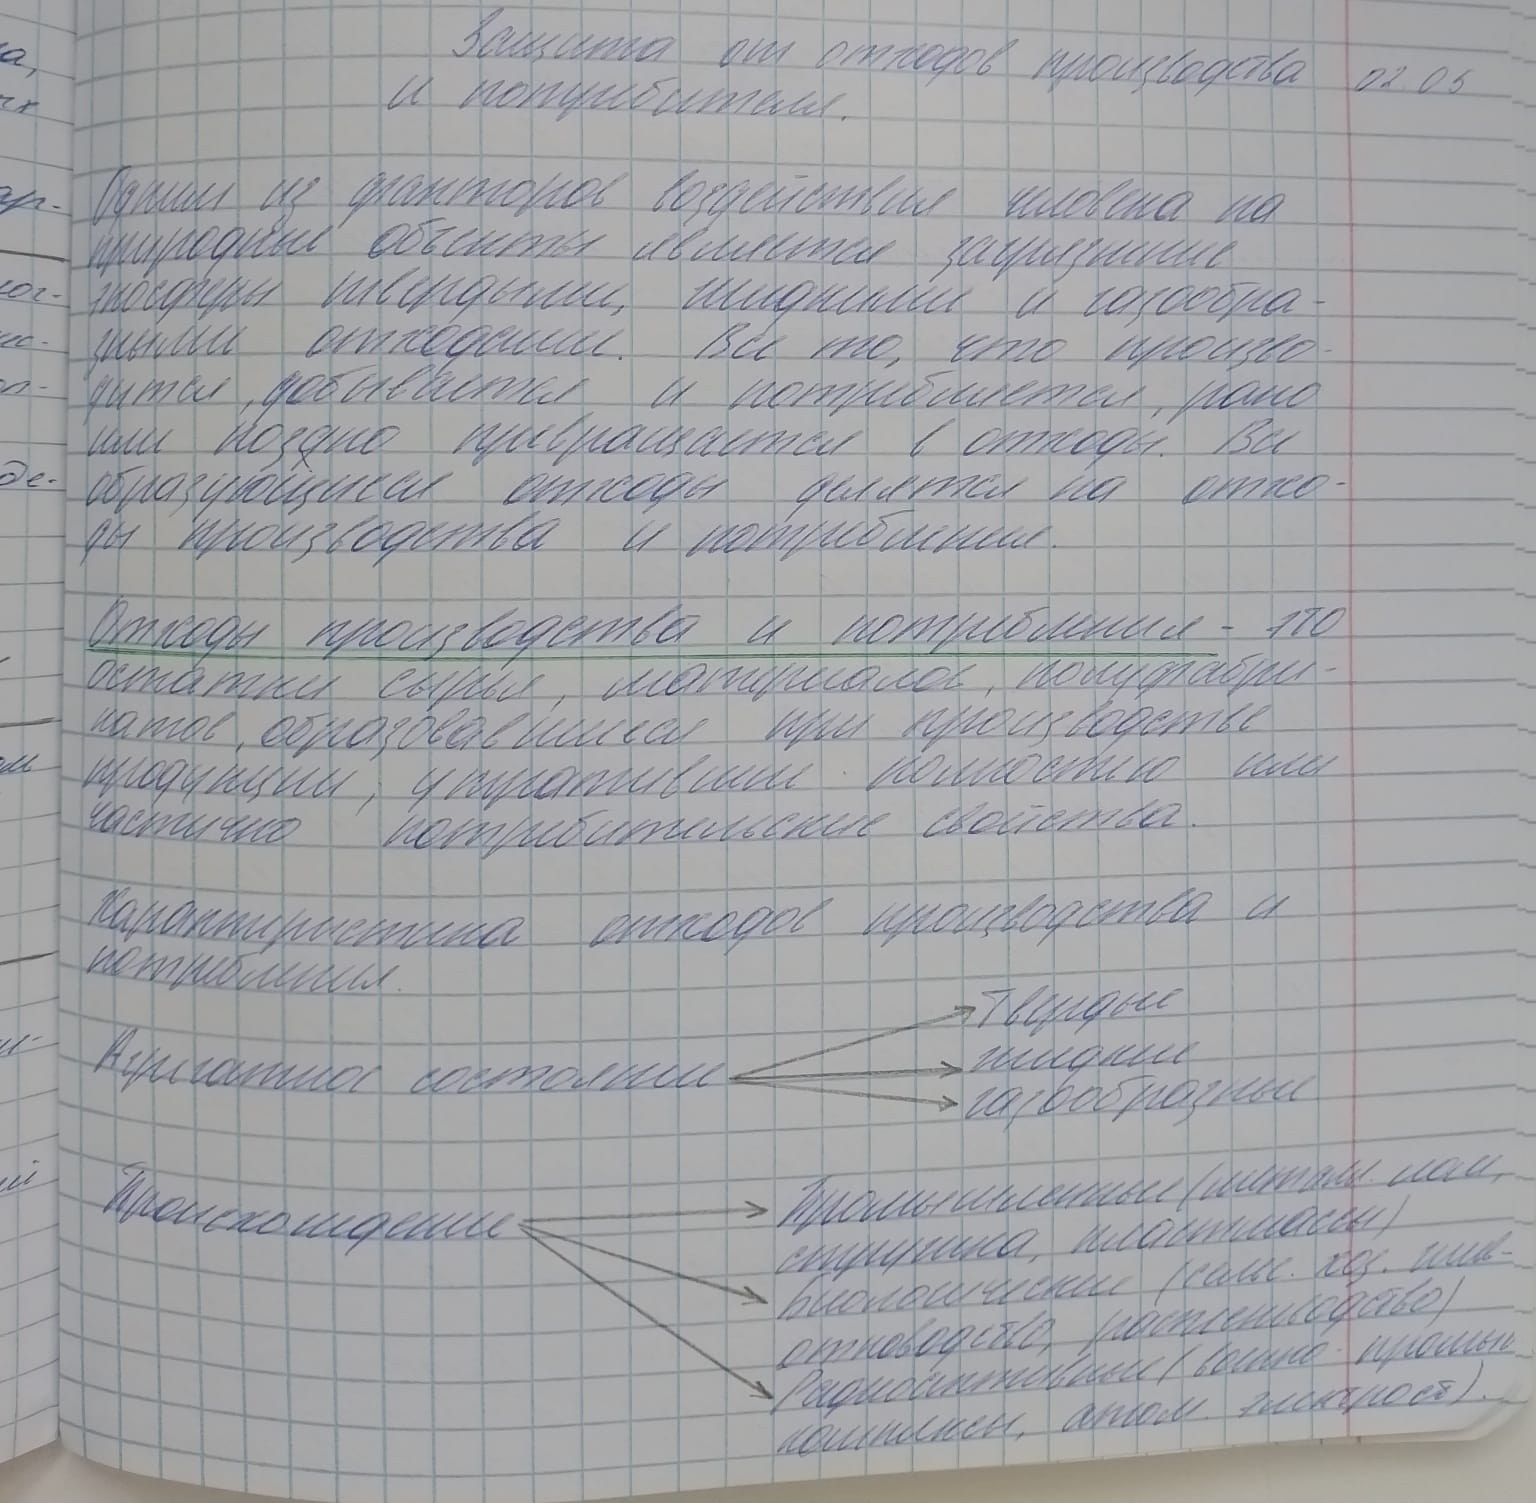 Защита от отходов производства 02.05
и потребителя.
Одним из факторов воздействия человека на
природные объекты является загрязнение
экосферы твердыми, жидкими и газообра-
зными отходами. Все то, что произво-
дится, добывается и потребляется, рано
или поздно превращается в отходы. Все
образующиеся отходы делятся на отхо-
ды производства и потребления.
Отходы производства и потребления - это
остатки сырья, материалов, полуфабри-
катов, образовавшиеся при производстве
продукции, утратившие полностью или
частично потребительские свойства.
Характеристика отходов производства и
потребления.
Твердые
Агрегатное состояние жидкие
газообразные
Происхождение Промышленные (металл. лом,
стружка, пластмассы)
Биологические (сельс. хоз. жив-
отноводство, растениеводство)
Радиоактивные (военно-промыш
комплексы, атом. электрост).